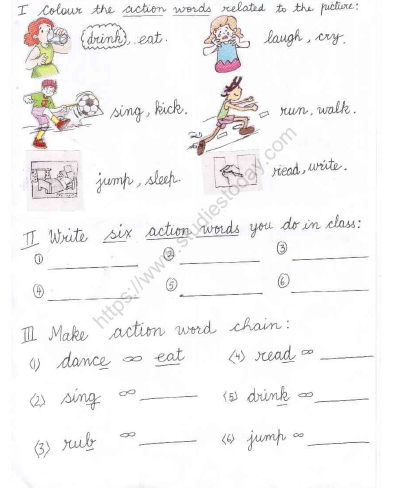 I Colour the action words related to the picture:
drink, eat.
laugh, cry.
sing, kick.
run, walk.
jump, sleep.
read, write.
II Write six action words you do in class:
① ② ③
④ ⑤ ⑥
III Make action word chain:
(1) dance ∞ eat (4) read ∞
(2) sing ∞ (5) drink ∞
(3) rub ∞ (6) jump ∞
https://www.studiestoday.com